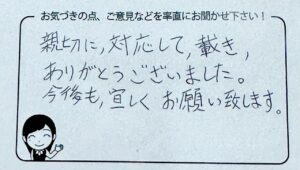 お気づきの点、ご意見などを率直にお聞かせ下さい！
親切に，対応して，載き，
ありがとうございました。
今後も，宜しく お願い致します。